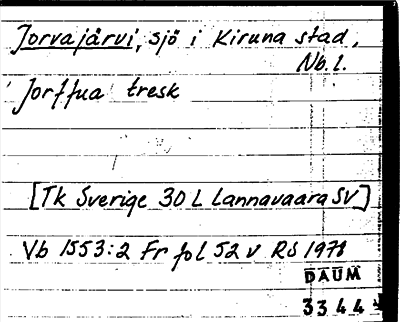 Jorvajärvi, sjö i Kiruna stad,
Nb. l.
Jorffua tresk
[Tk Sverige 30 L Lannavaara SV]
Vb 1553:2 Fr fol 52 v RS 1978
DAUM
3344